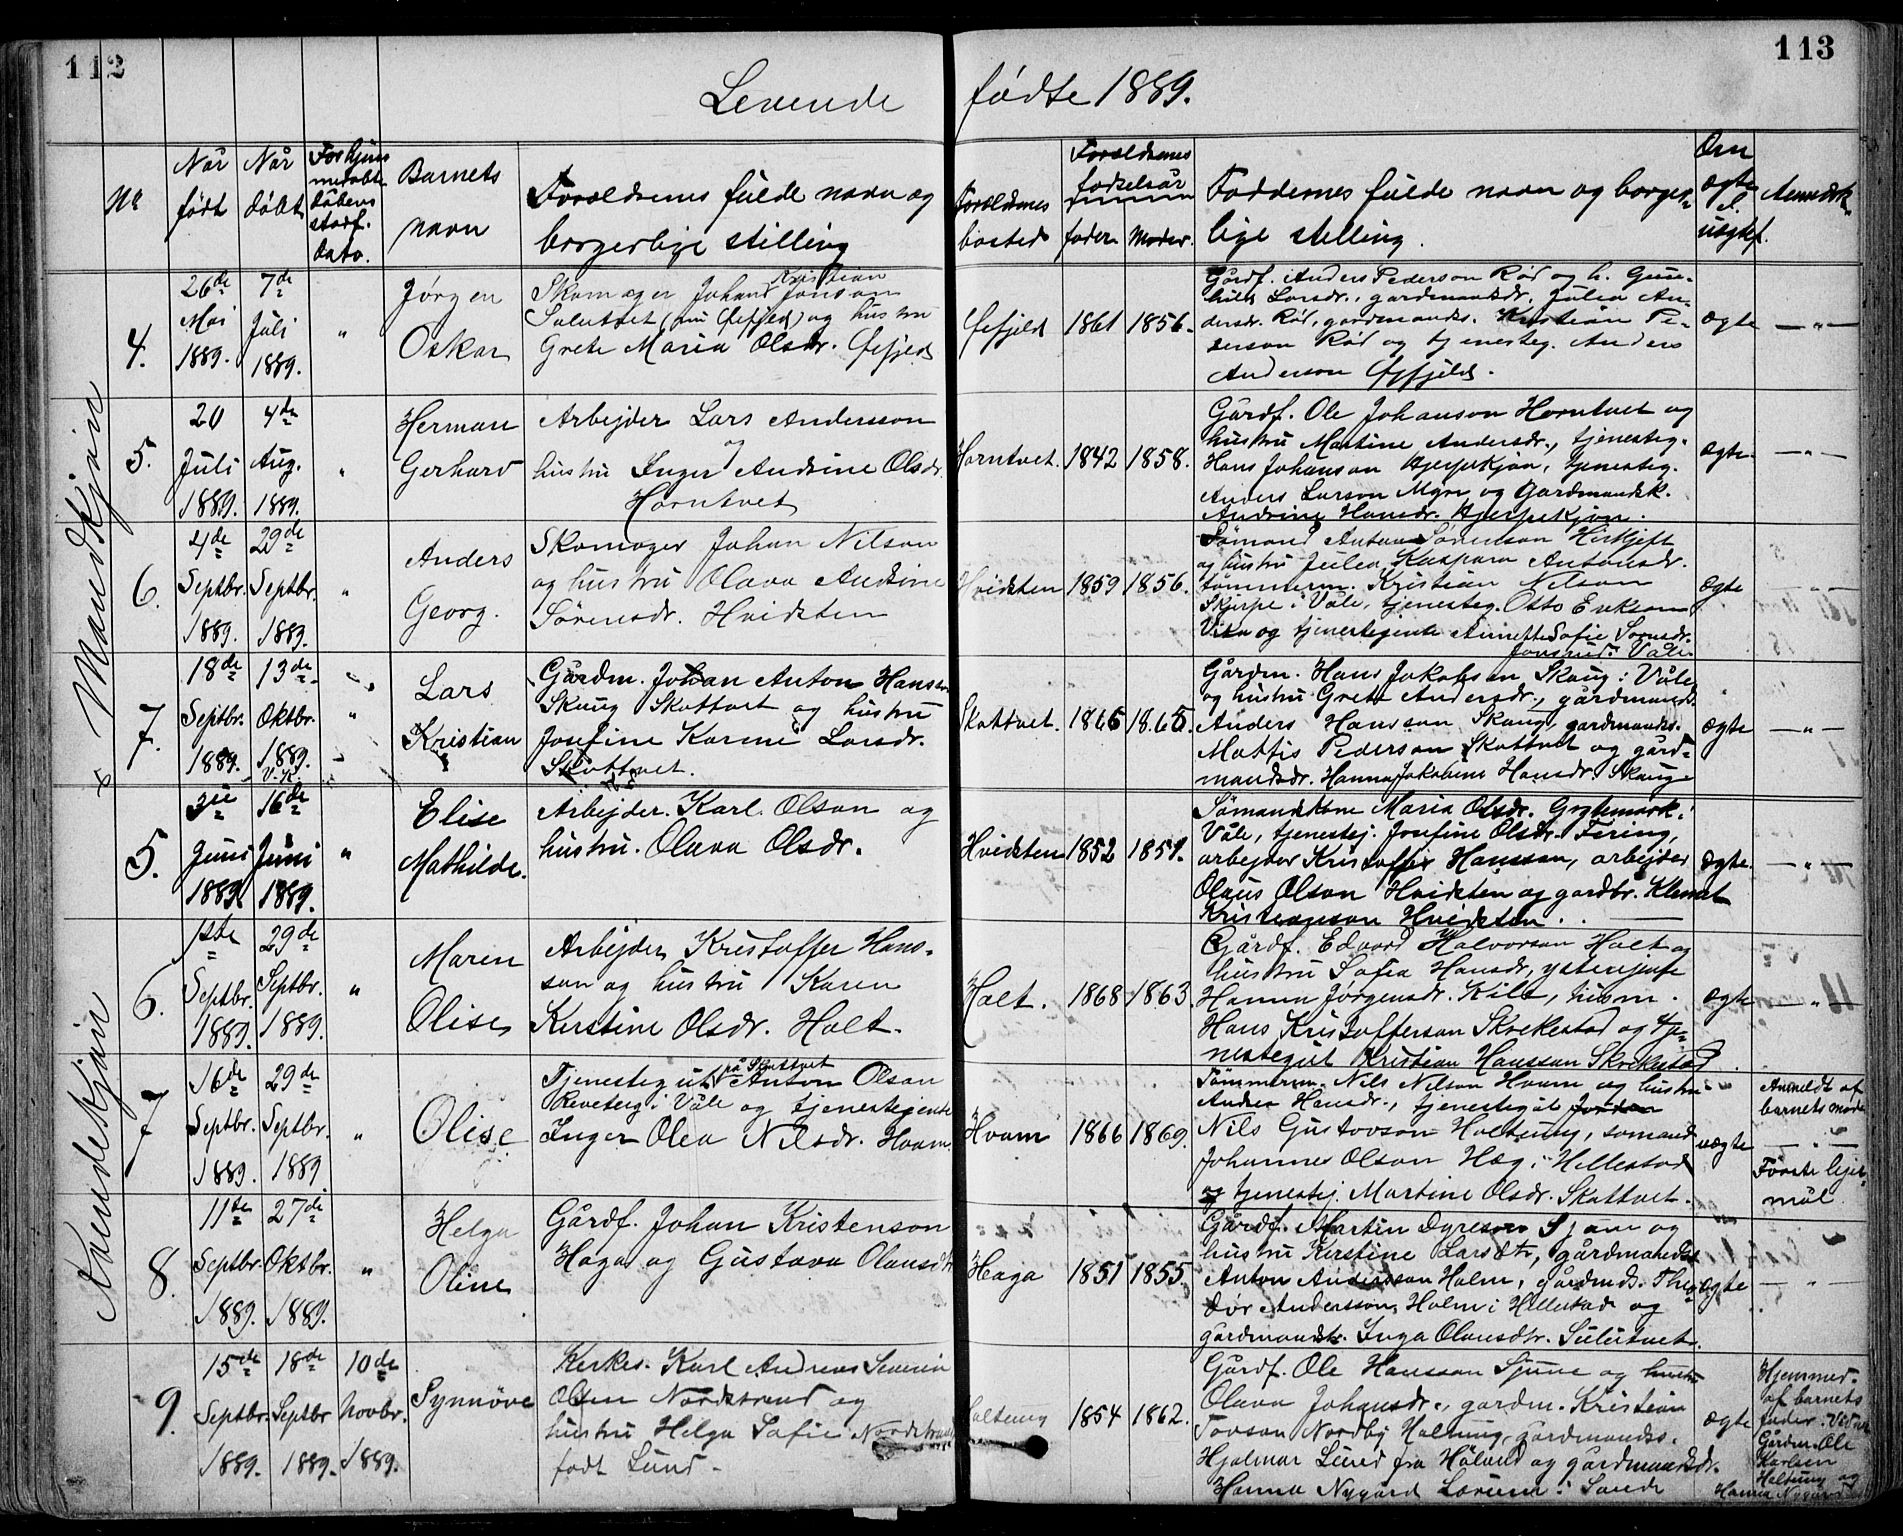 112
113
Levende fødte 1889.
No
Når født
Når døbt
Barnets navn
Forældrenes fulde navn og borgerlige stilling
Forældrenes bosted
Forældrenes fødselsår
faders
Moder.
Faddernes fulde navn og borgerlige stilling.
Om ægte el. uægte f.
Anmærk.
Mandkjøn
4.
26de Mai 1889.
7de Juli 1889.
"
Jørgen Oskar
Skomager Johand Kristian Jonson
Sulutvet (nu Øefjeld) og hustru
Grete Maria Olsdr. Øefjeld
Øefjeld
1861
1856.
Gårdf. Anders Pederson Rød og h. Gune-
hild Larsdr., gardmandsdr. Julia An-
dersdr. Rød, gardmands. Kristian Pe-
derson Rød og tjenesteg. Anders
Anderson Øefjeld.
ægte
— " —
5.
20 Juli 1889.
4de Aug. 1889.
"
Herman Gerhard
Arbejder Lars Andersson og
hustru Inger Andrine Olsdr.
Horntvet
Horntvet.
1842
1858.
Gårdf. Ole Johanson Horntvet og
hustru Martine Andersdr., tjenesteg.
Hans Johanson Hjerpekjøn, tjenesteg.
Anders Larson Myre og Gardmandsk.
Andrine Hansdr. Hjerpekjøn.
ægte.
— " —
6.
4de Septbr. 1889.
29de Septbr. 1889.
"
Anders Georg.
Skomager Johan Nilson
og hustru Olava Andrine
Sørensdr. Hvidsten
Hvidsten
1859
1856.
Sømand Anton Sørenson
og hustru Julea Kaspara Antonsdr.
tømmerm. Kristian Nilson
Skjerpe i Våle, tjenesteg. Otto Erikson
og tjenestegente Annette Sofie
Våle.
ægte
7.
18de Septbr. 1889.
13de Oktbr. 1889.
V. K.
"
Lars Kristian
Gårdm. Johan Anton Hansen
Skaug Skottvet og hustru
Josefine Karine Larsdr.
Skottvet.
Skottvet.
1865
1865.
Gårdm. Hans Jakobsen Skaug i Våle
og hustru Grete Andersdr., gårdmands.
Anders Hansson Skaug, gardmands.
Mattis Pederson Skottvet og gård-
mandsdr. Hanna Jakobine Hansdr. Skaug
ægte
— " —
Kvindekjøn
5.
3die Juni 1889.
16de Juni 1889.
"
Elise Mathilde.
Arbejder. Karl Olson og
hustru. Olava Olsdr.
Hvidsten
1852
1851.
Sømandskone Maria Olsdr. i
Våle, tjenestej. Josefine Olsdr.
arbejder Kristoffer Hansson, arbejder
Olaus Olson Hvidsten og gardbr. Klemet
Kristianson Hvidsten.
ægte.
— " —
6.
1ste Septbr. 1889.
29de Septbr. 1889.
"
Maren Olise
Arbejder Kristoffer Hans-
son og hustru Karen
Kirstine Olsdr. Holt.
Holt.
1868
1863.
Gårdf. Edvard Halvorson Holt og
hustru Sofia Hansdr,
Hanna Jørgensdr. Kile, husm.
Hans Kristofferson Skrekestad og tje-
nestegut Kristian Hansson Skrekestad.
ægte
— " —
7
16de Septbr. 1889.
29de Septbr. 1889
"
Olise
Tjenestegut på Skottvet Anton Olson
Reveteig i Våle og tjenestegente
Inger Olea Nilsdr. Hvam.
Hvam
1866
1869.
Tømmerm. Nils Nilson Hvam og hustru
Andrea Hansdr., tjenestegut
Nils Gustavson Holtung, sømand
Johannes Olson Hæg i Hillestad
og tjenestej. Martine Olsdr. Skottvet.
uægte
Anmeldt af
barnets moder
— " —
Første lejer-
mål
8.
11te Septbr. 1889.
27de Oktbr. 1889.
"
Helga Oline
Gårdf. Johan Kristenson
Haga og Gustava Olausdtr
Haga
1851
1855.
Gårdf. Martin Dyreson og
hustru Kirstine Larsdtr, gårdmands.
Anton Andersson Holm, gårdmds. Theo-
dor Andersson Holm i Hillestad og
gårdmandsdtr. Inga Olausdtr. Sulutvet.
ægte
— " —
9.
15de Septbr. 1889.
18de Septbr 1889.
10de Novbr. 1889.
Synnøve
Kirkes. Karl Andreas Severin
Olsen Nordstrand og
hustru Helga Sofie Nordstrand
født Lund.
Holtung
1854
1862.
Gårdf. Ole Hansson Sjune og hustru
Olava Johansdr., gardm. Kristian
Torson Nordby Holtung, gårdmands.
Hjalmar Lund fra Hålund og gårdmandsdr.
Hanna Nygård Lærum i Sande
ægte
Hjemmed.
af barnets
fader. Vidner
Gårdm. Ole
Karlsen
Holtung og
Hanna Nygård